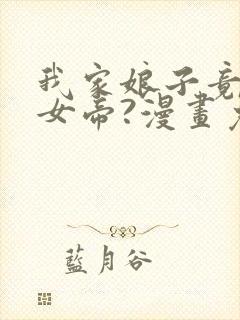 我家娘子竟
女帝?漫畫
藍月谷